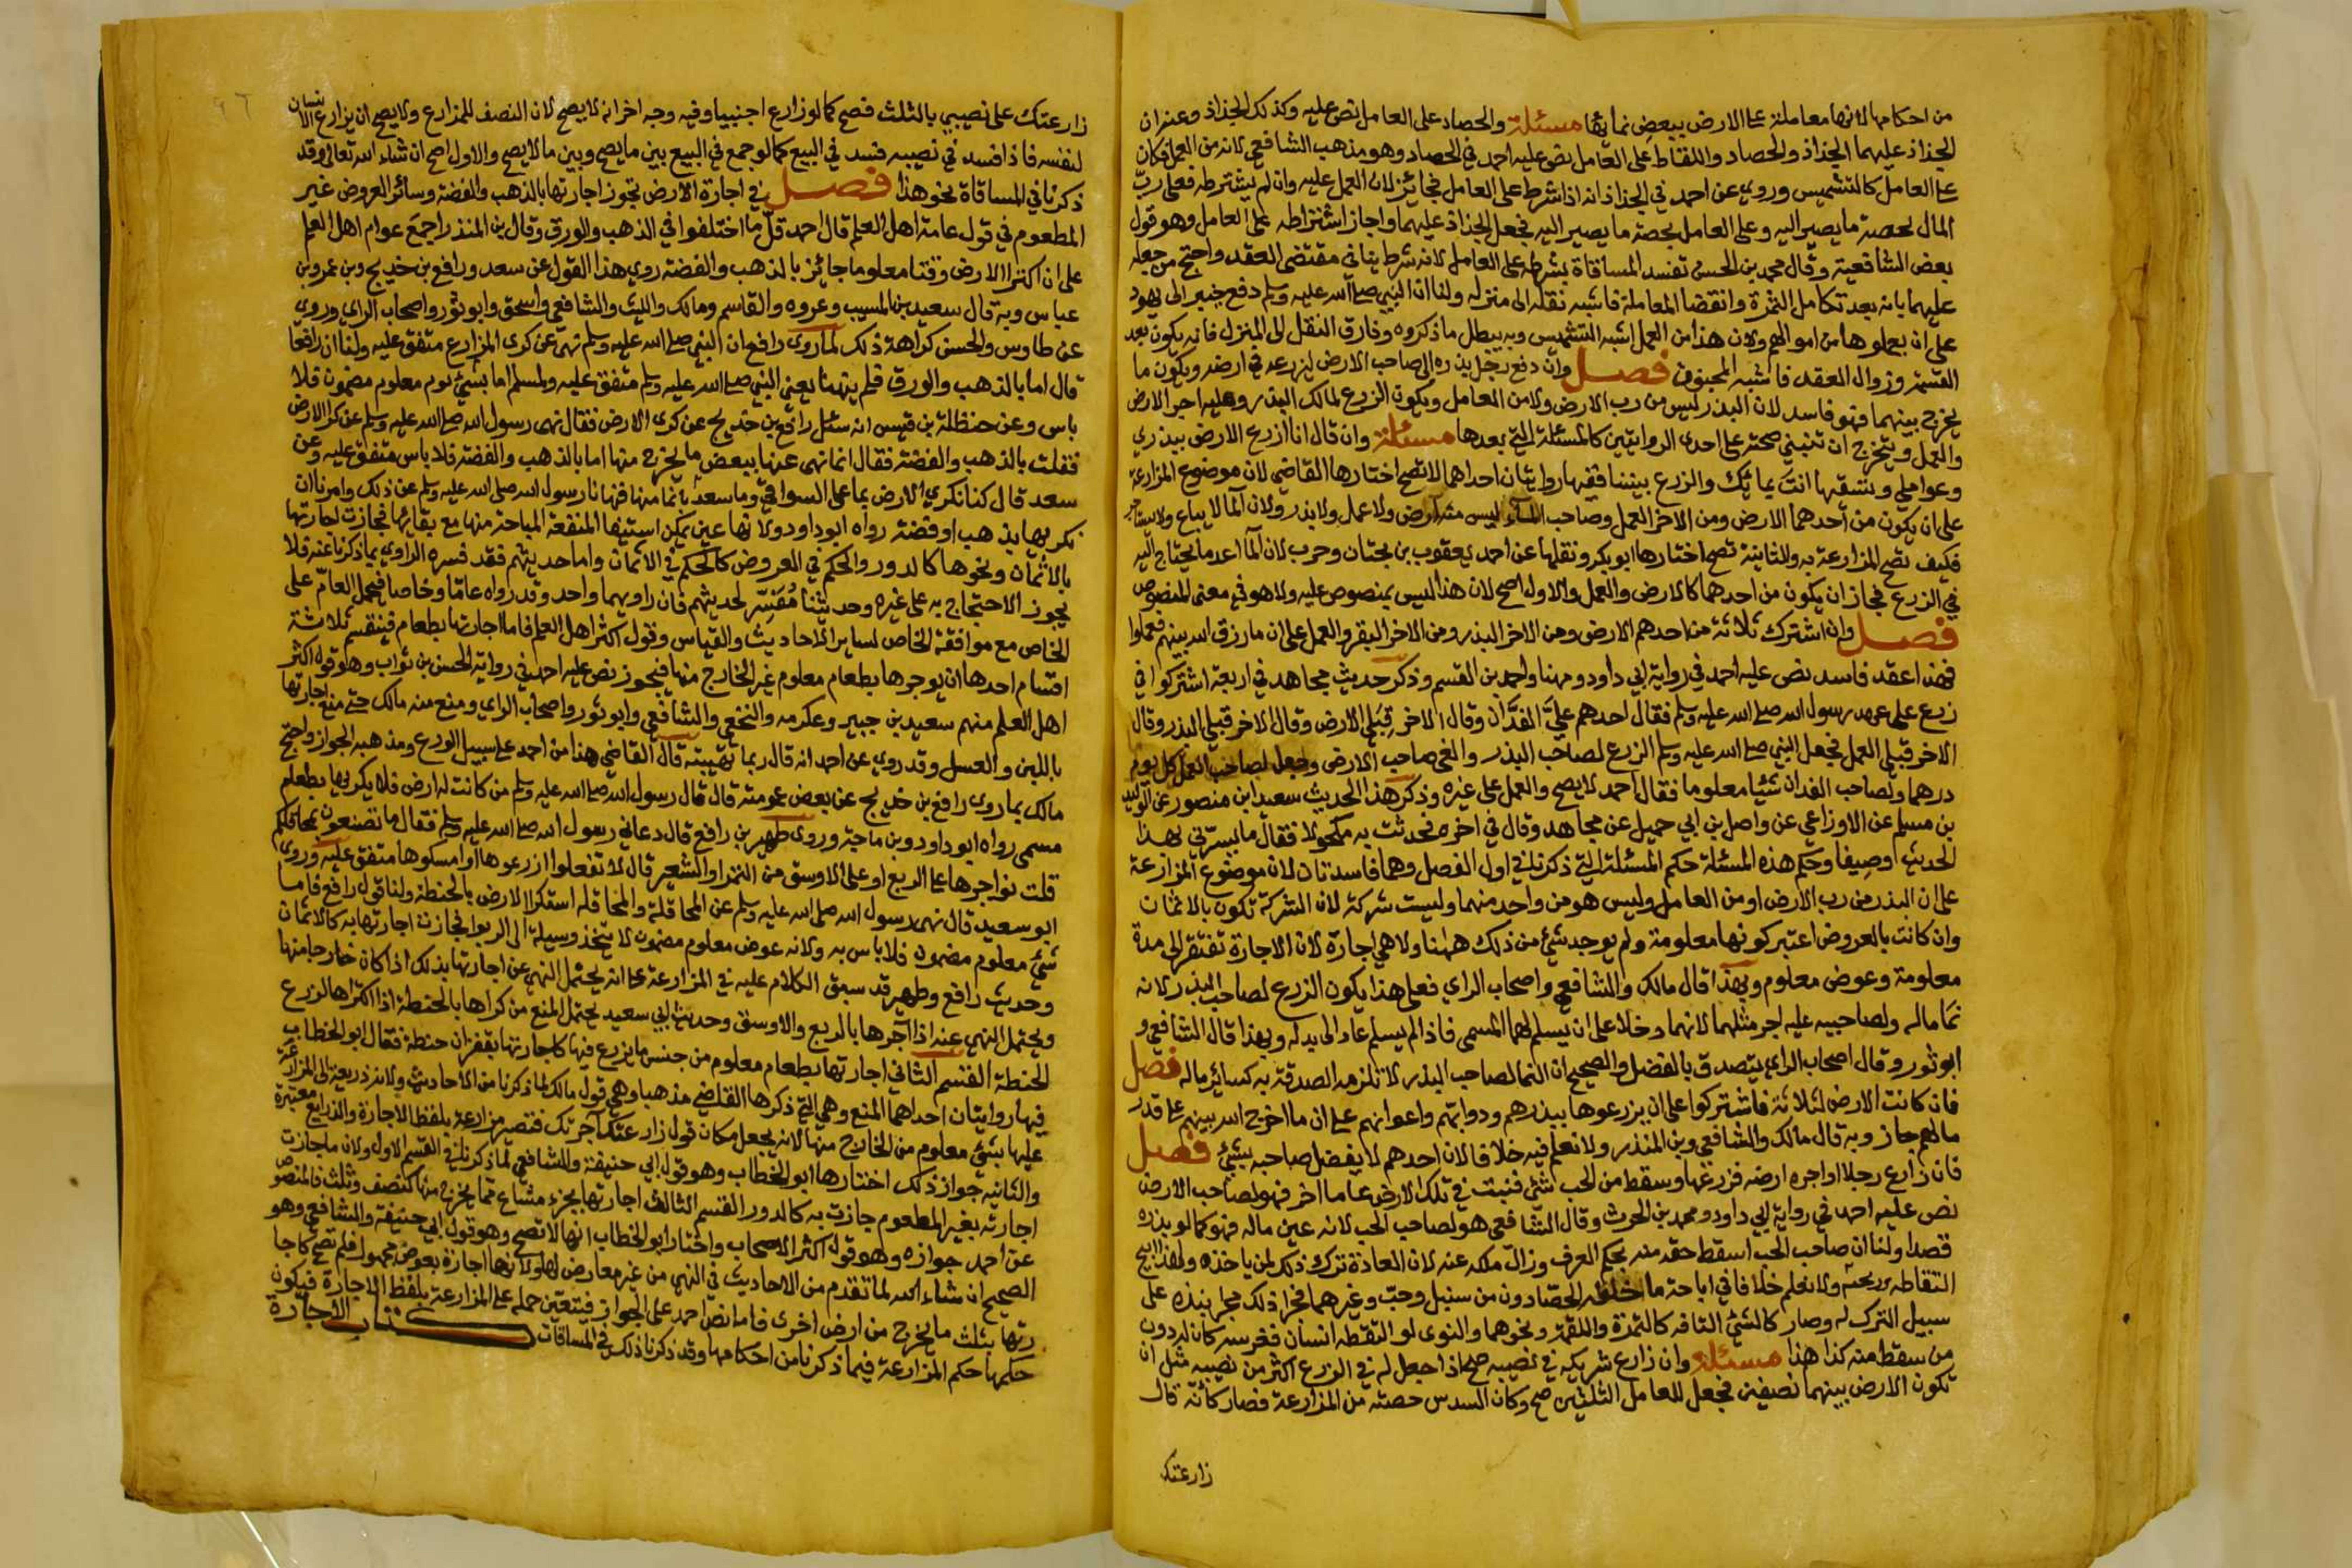 من احكامها لانها معاملة على الارض ببعض نمائها مسئلة والحصاد على العامل نص عليه وكذلك الجذاذ وعنه ان
الجذاذ عليهما الجذاذ والحصاد واللقاط على العامل نص عليه احمد في الحصاد وهو مذهب الشافعي لانه من العمل فكان
على العامل كالتشميس وروي عن احمد في الجذاذ انه اذا شرط على العامل فجائز لان العمل عليه وان لم يشترطه فعلى رب
المال بحصة ما يصير اليه وعلى العامل بحصة ما يصير اليه فجعل الجذاذ عليهما واجاز اشتراطه على العامل وهو قول
بعض الشافعية وقال محمد بن الحسن تفسد المساقاة بشرطه على العامل لانه شرط ينافي مقتضى العقد واحتج من جعله
عليهما بانه بعد تكامل الثمرة وانقضا المعاملة فاشبه نقله الى منزله ولنا ان النبي صلى الله عليه وسلم دفع خيبر الى يهود
على ان يعملوها من اموالهم ولان هذا من العمل اشبه التشميس وبه يبطل ما ذكروه وفارق النقل الى المنزل فانه يكون بعد
القسمة وزوال العقد فاشبه المخزون فصل وان دفع رجل بذره الى صاحب الارض ليزرعه في ارضه ويكون ما
يخرج بينهما فهو فاسد لان البذر ليس من رب الارض ولا من العامل ويكون الزرع لمالك البذر وعليه اجر الارض
والعمل ويتخرج ان تنبني صحته على احدى الروايتين كالمسئلة التي بعدها مسئلة وان قال انا ازرع الارض ببذري
وعواملي وتسقيها انت بمائك والزرع بيننا ففيها روايتان احداهما لا تصح اختارها القاضي لان موضوع المزارعة
على ان يكون من احدهما الارض ومن الاخر العمل وصاحب الماء ليس منه ارض ولا عمل ولا بذر ولان الما لا يباع ولا يستاجر
فكيف تصح المزارعة به والثانية تصح اختارها ابو بكر ونقلها عن احمد يعقوب بن بختان وحرب لان الما احد ما يحتاج اليه
في الزرع فجاز ان يكون من احدهما كالارض والعمل والاول اصح لان هذا ليس بمنصوص عليه ولا هو في معنى المنصوص
فصل وان اشترك ثلاثة من احدهم الارض ومن الاخر البذر ومن الاخر البقر والعمل على ان ما رزق الله بينهم فعملوا
فهذا عقد فاسد نص عليه احمد في رواية ابي داود ومهنا واحمد بن القسم وذكر حديث مجاهد في اربعة اشتركوا في
زرع على عهد رسول الله صلى الله عليه وسلم فقال احدهم علي الفدان وقال الاخر قبلي الارض وقال الاخر قبلي البذر وقال
الاخر قبلي العمل فجعل النبي صلى الله عليه وسلم الزرع لصاحب البذر والغى صاحب الارض وجعل لصاحب العمل كل يوم
درهما ولصاحب الفدان شيئا معلوما فقال احمد لا يصح والعمل على غيره وذكر هذا الحديث سعيد ابن منصور عن الوليد
بن مسلم عن الاوزاعي عن واصل بن ابي جميل عن مجاهد وقال في اخره فحدثت به مكحولا فقال ما يسرني بهذا
الحديث وصيفا وحكم هذه المسئلة حكم المسئلة التي ذكرناها في اول الفصل وهما فاسدتان لان موضوع المزارعة
على ان البذر من رب الارض او من العامل وليس هو من واحد منهما وليست شركة لان الشركة تكون بالاثمان
وان كانت بالعروض اعتبر كونها معلومة ولم يوجد شيء من ذلك ههنا ولا هي اجارة لان الاجارة تفتقر الى مدة
معلومة وعوض معلوم وبهذا قال مالك والشافعي واصحاب الراي فعلى هذا يكون الزرع لصاحب البذر لانه
نما ماله ولصاحبيه عليه اجر مثلهما لانهما دخلا على ان يسلم لهما المسمى فاذا لم يسلم عاد الى بدله وبهذا قال الشافعي و
ابو ثور وقال اصحاب الراي يتصدق بالفضل والصحيح ان النما لصاحب البذر لا تلزمه الصدقة به كسائر ماله فصل
فان كانت الارض لثلاثة فاشتركوا على ان يزرعوها ببذرهم ودوابهم واعوانهم على ان ما اخرج الله بينهم على قدر
مالهم جاز وبه قال مالك والشافعي وبن المنذر ولا نعلم فيه خلافا لان احدهم لا يفضل صاحبه بشيء فصل
فان زارع رجلا او اجره ارضه فزرعها وسقط من الحب شيء فنبت في تلك الارض عاما اخر فهو لصاحب الارض
نص عليه احمد في رواية ابي داود ومحمد بن الحرث وقال الشافعي هو لصاحب الحب لانه عين ماله فهو كما لو بذره
قصدا ولنا ان صاحب الحب اسقط حقه منه بحكم العرف وزال ملكه عنه لان العادة ترك ذلك لمن ياخذه ولهذا ابيح
التقاطه ورعيه ولا نعلم خلافا في اباحة ما خلفه الحصادون من سنبل وحب وغيرهما فجرا ذلك مجرا نبذه على
سبيل الترك له وصار كالشيء التافه كالتمرة واللقمة ونحوهما والنوى لو التقطه انسان فغرسه كان له دون
من سقط منه كذا هذا مسئلة وان زارع شريكه في نصيبه صح اذا جعل له في الزرع اكثر من نصيبه مثل ان
تكون الارض بينهما نصفين فجعل للعامل الثلثين صح وكان السدس حصته من المزارعة فصار كانه قال
زارعتك
زارعتك على نصيبي بالثلث فصح كما لو زارع اجنبيا وفيه وجه اخر انه لا يصح لان النصف للمزارع ولا يصح ان يزارع الانسان
لنفسه فاذا فسد في نصيبه فسد في البيع كما لو جمع في البيع بين ما يصح وبين ما لا يصح والاول اصح ان شاء الله تعالى وقد
ذكرنا في المساقاة نحو هذا فصل في اجارة الارض تجوز اجارتها بالذهب والفضة وسائر العروض غير
المطعوم في قول عامة اهل العلم قال احمد قل ما اختلفوا في الذهب والورق وقال بن المنذر اجمع عوام اهل العلم
على ان اكترا الارض وقتا معلوما جائز بالذهب والفضة روي هذا القول عن سعد ورافع بن خديج وبن عمر وبن
عباس وبه قال سعيد بن المسيب وعروه والقاسم ومالك والليث والشافعي واسحق وابو ثور واصحاب الراي وروي
عن طاوس والحسن كراهة ذلك لما روى رافع ان النبي صلى الله عليه وسلم نهى عن كرى المزارع متفق عليه ولنا ان رافعا
قال اما بالذهب والورق فلم ينهنا يعني النبي صلى الله عليه وسلم متفق عليه ولمسلم اما بشيء معلوم مضمون فلا
باس وعن حنظلة بن قيس انه سئل رافع بن خديج عن كرى الارض فقال نهى رسول الله صلى الله عليه وسلم عن كرا الارض
فقلت بالذهب والفضة فقال انما نهى عنها ببعض ما يخرج منها اما بالذهب والفضة فلا باس متفق عليه وعن
سعد قال كنا نكري الارض بما على السواقي وما سعد بالما منها فنهانا رسول الله صلى الله عليه وسلم عن ذلك وامرنا ان
نكريها بذهب او فضة رواه ابو داود ولانها عين يمكن استيفا المنفعة المباحة منها مع بقائها فجازت اجارتها
بالاثمان ونحوها كالدور والحكم في العروض كالحكم في الاثمان واما حديثهم فقد فسره الراوي بما ذكرنا عنه فلا
يجوز الاحتجاج به على غيره وحديثنا مفسر لحديثهم فان راويهما واحد وقد رواه عاما وخاصا فيحمل العام على
الخاص مع موافقة الخاص لساير الاحاديث والقياس وقول اكثر اهل العلم فاما اجارتها بطعام فينقسم ثلاثة
اقسام احدها ان يوجرها بطعام معلوم غير الخارج منها فيجوز نص عليه احمد في رواية الحسن بن ثواب وهو قول اكثر
اهل العلم منهم سعيد بن جبير وعكرمه والنخعي والشافعي وابو ثور واصحاب الراي ومنع منه مالك حتى منع اجارتها
باللبن والعسل وقد روي عن احمد انه قال ربما تهيبته قال القاضي هذا من احمد على سبيل الورع ومذهبه الجواز واحتج
مالك بما روى رافع بن خديج عن بعض عمومته قال قال رسول الله صلى الله عليه وسلم من كانت له ارض فلا يكريها بطعام
مسمى رواه ابو داود وبن ماجة وروى ظهير بن رافع قال دعاني رسول الله صلى الله عليه وسلم فقال ما تصنعون بمحاقلكم
قلت نواجرها على الربع او على الاوسق من التمر او الشعير قال لا تفعلوا ازرعوها او امسكوها متفق عليه وروى
ابو سعيد قال نهى رسول الله صلى الله عليه وسلم عن المحاقلة والمحاقله استكرا الارض بالحنطة ولنا قول رافع فاما
شيء معلوم مضمون فلا باس به ولانه عوض معلوم مضمون لا يتخذ وسيلة الى الربوا فجازت اجارتها به كالاثمان
وحديث رافع وظهير قد سبق الكلام عليه في المزارعة على انه يحتمل النهي عن اجارتها بذلك اذا كان خارجا منها
ويحتمل النهي عنه اذا آجرها بالربع والاوسق وحديث ابي سعيد يحتمل المنع من كراها بالحنطة اذا اكتراها لزرع
الحنطة القسم الثاني اجارتها بطعام معلوم من جنس ما يزرع فيها كاجارتها بقفزان حنطة فقال ابو الخطاب
فيها روايتان احداهما المنع وهي التي ذكرها القاضي مذهبا وهي قول مالك لما ذكرنا من الاحاديث ولانه ذريعة الى المزارعة
عليها بشيء معلوم من الخارج منها لانه يجعل مكان قوله زارعتك آجرتك فتصير مزارعة بلفظ الاجارة والذرايع معتبرة
والثانيه جواز ذلك اختارها ابو الخطاب وهو قول ابي حنيفة والشافعي لما ذكرناه في القسم الاول ولان ما جازت
اجارته بغير المطعوم جازت به كالدور القسم الثالث اجارتها بجزء مشاع مما يخرج منها كنصف وثلث فالمنصوص
عن احمد جوازه وهو قول اكثر الاصحاب واختار ابو الخطاب انها لا تصح وهو قول ابي حنيفة والشافعي وهو
الصحيح ان شاء الله لما تقدم من الاحاديث في النهي من غير معارض لها ولانها اجارة بعوض مجهول فلم تصح كاجا
رتها بثلث ما يخرج من ارض اخرى فاما نص احمد على الجواز فيتعين حمله على المزارعة بلفظ الاجارة فيكون
حكمها حكم المزارعة فيما ذكرنا من احكامها وقد ذكرنا ذلك في المساقات كتاب الاجارة